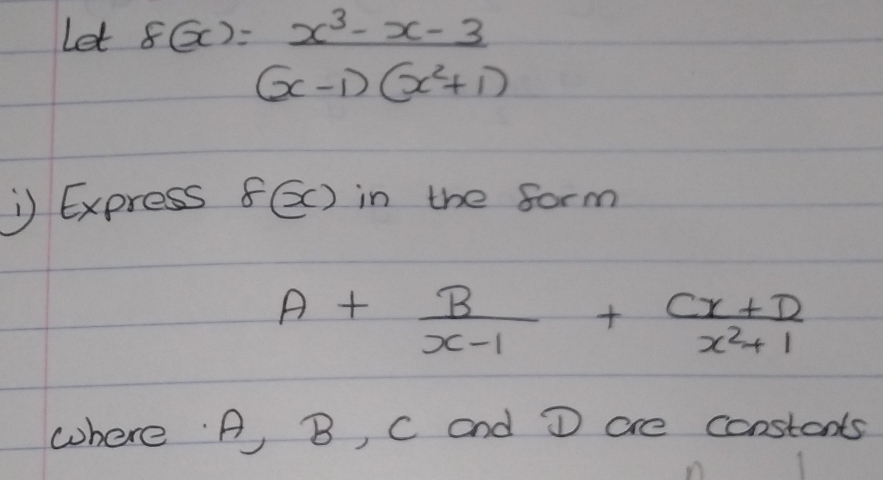 Let f(x) = x³ - x - 3
(x - 1)(x² + 1)
i) Express f(x) in the form
A + B/(x - 1) + (Cx + D)/(x² + 1)
where A, B, C and D are constants